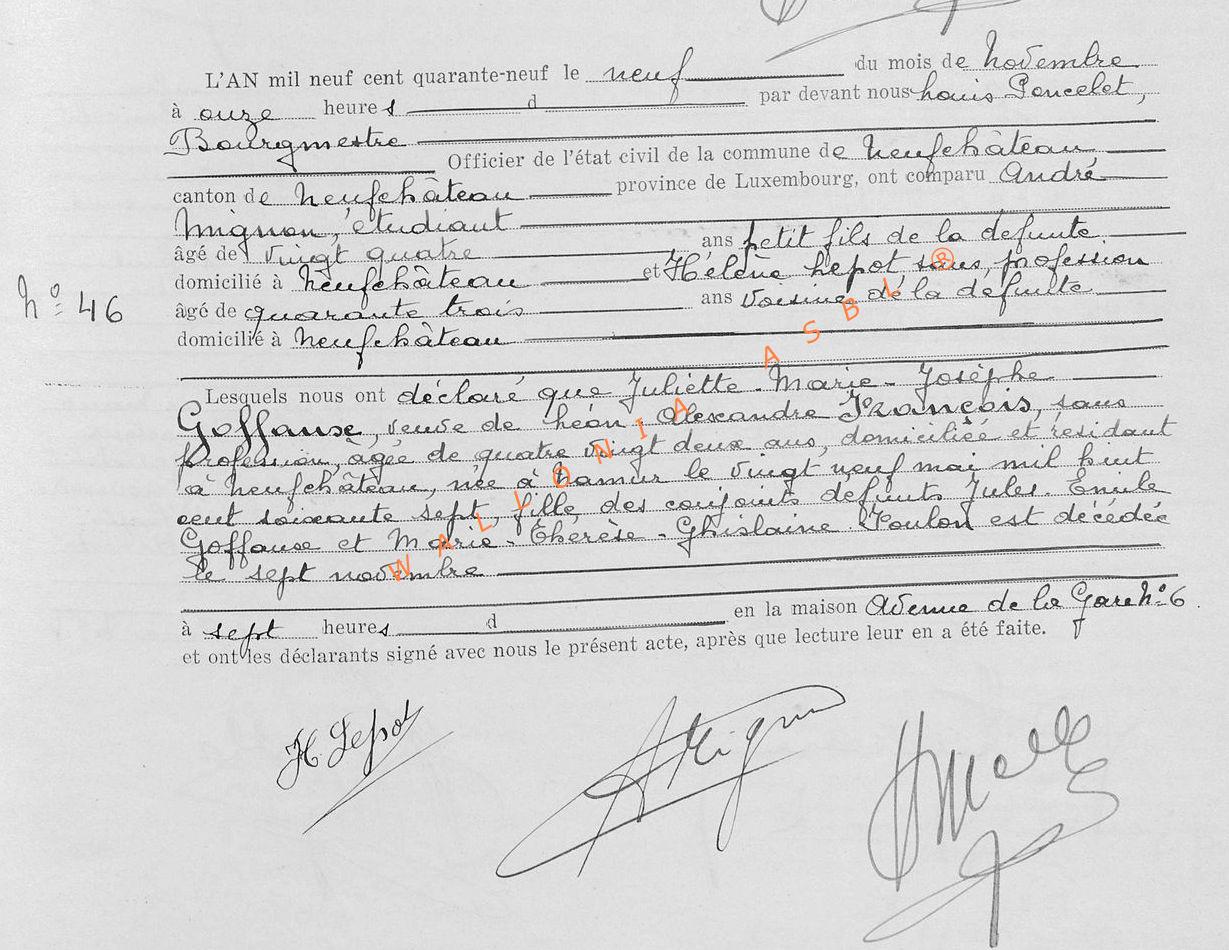 L'AN mil neuf cent quarante-neuf le neuf du mois de Novembre
à onze heures d par devant nous Louis Poncelet,
Bourgmestre
Officier de l'état civil de la commune de Neufchâteau
canton de Neufchâteau province de Luxembourg, ont comparu André
Mignon, étudiant
âgé de vingt quatre ans petit fils de la défunte
domicilié à Neufchâteau et Hélène Lepot, sans, profession
N° 46
âgé de quarante trois ans voisine de la défunte
domicilié à Neufchâteau
Lesquels nous ont déclaré que Juliette - Marie - Josèphe
Goffaux, veuve de Léon - Alexandre François, sans
profession, âgée de quatre vingt deux ans, domiciliée et résidant
à Neufchâteau, née à Namur le vingt neuf mai mil huit
cent soixante sept, fille des conjoints défunts Jules - Emile
Goffaux et Marie - Thérèse - Ghislaine Toulon est décédée
le sept novembre
à sept heures d en la maison Avenue de la Gare N° 6.
et ont les déclarants signé avec nous le présent acte, après que lecture leur en a été faite.
H. Lepot AMignon
WALLONIA ASBL ®